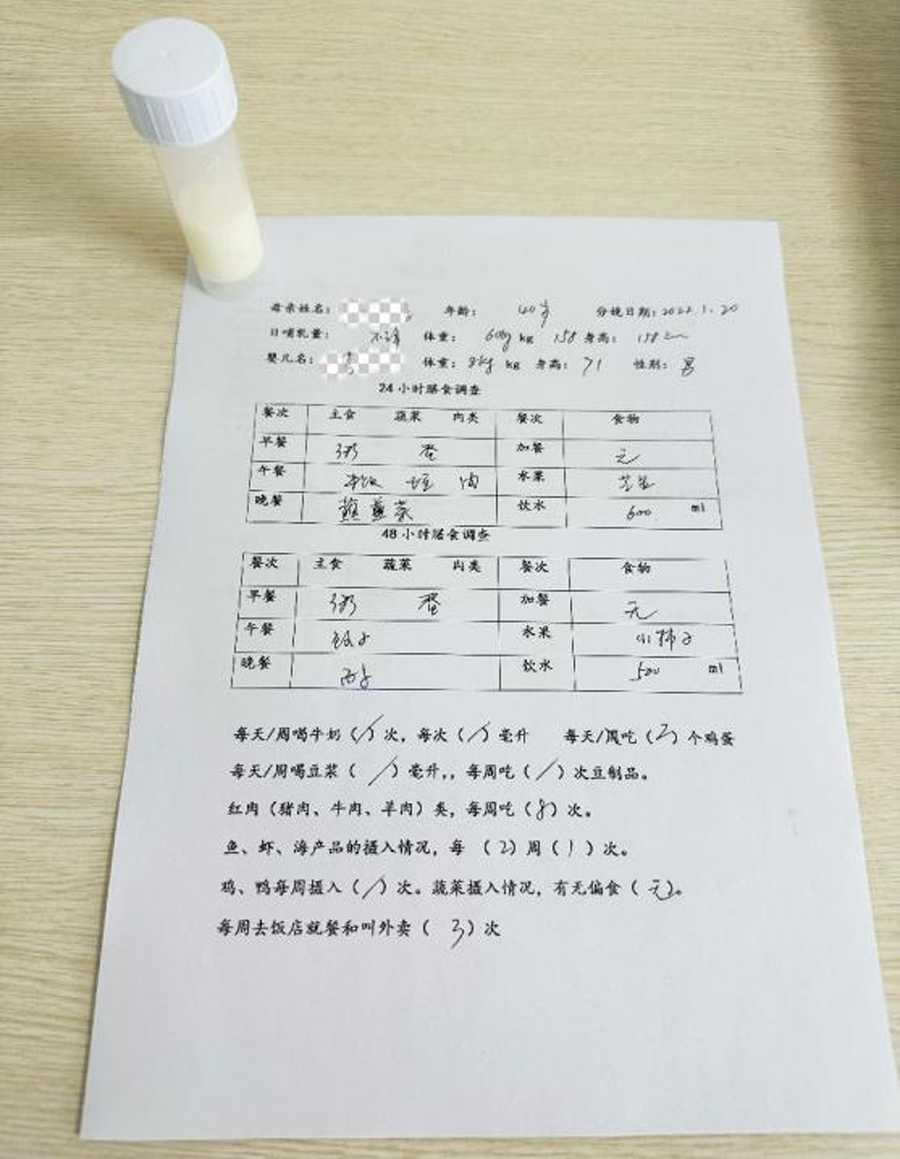 母亲姓名： 年龄： 40岁 分娩日期：2022.1.20
日哺乳量： 体重： 60kg kg 158 身高： 158cm
婴儿名： 体重：8kg kg 身高：71 性别：男
24小时膳食调查
餐次 主食 蔬菜 肉类 餐次 食物
早餐 粥 蛋 加餐 无
午餐 米饭 肉 水果
晚餐 菜 饮水 600 ml
48小时膳食调查
餐次 主食 蔬菜 肉类 餐次 食物
早餐 粥 蛋 加餐 无
午餐 饺子 水果 小柿子
晚餐 饮水 500 ml
每天/周喝牛奶（/）次，每次（/）毫升 每天/周吃（ ）个鸡蛋
每天/周喝豆浆（ / ）毫升，，每周吃（/）次豆制品。
红肉（猪肉、牛肉、羊肉）类，每周吃（8）次。
鱼、虾、海产品的摄入情况，每 （2）周（1）次。
鸡、鸭每周摄入（/）次。蔬菜摄入情况，有无偏食（无）。
每周去饭店就餐和叫外卖（ 3）次